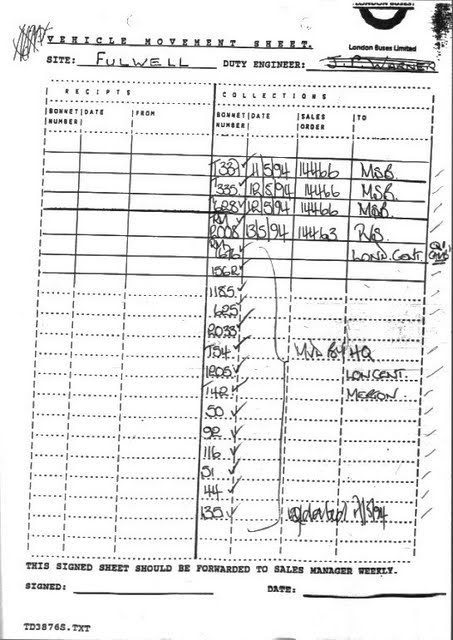 LONDON BUSES
London Buses Limited
VEHICLE MOVEMENT SHEET.
SITE: FULWELL DUTY ENGINEER: J.P. WARNER
RECEIPTS COLLECTIONS
BONNET NUMBER DATE FROM BONNET NUMBER DATE SALES ORDER TO
T331 ✓ 11/5/94 14466 MSB.
T335 ✓ 12/5/94 14466 MSB.
T628 ✓ 12/5/94 14466 MSB.
RM 2008 ✓ 13/5/94 14463 R/S.
RM 1676 ✓ LOND. CENT.
1562 ✓
1185 ✓
625 ✓
2033 ✓
T54 ✓ MVD BY HQ
1205 ✓ LON CENT.
T142 ✓ MERTON
50 ✓
92 ✓
116 ✓
51 ✓
44 ✓
135 ✓
THIS SIGNED SHEET SHOULD BE FORWARDED TO SALES MANAGER WEEKLY.
SIGNED: DATE:
TD3876S.TXT